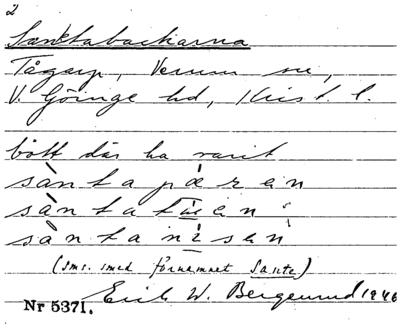 2
Sanktabackarna
Tågarp, Verum sn,
V. Göinge hd, Krist. l.
bott där ha varit
sàntapæ̀ran
sàntata
sàntanìsen
(sms. med förnamnet Sante)
Nr 5371. Erik W. Bergelund 1946